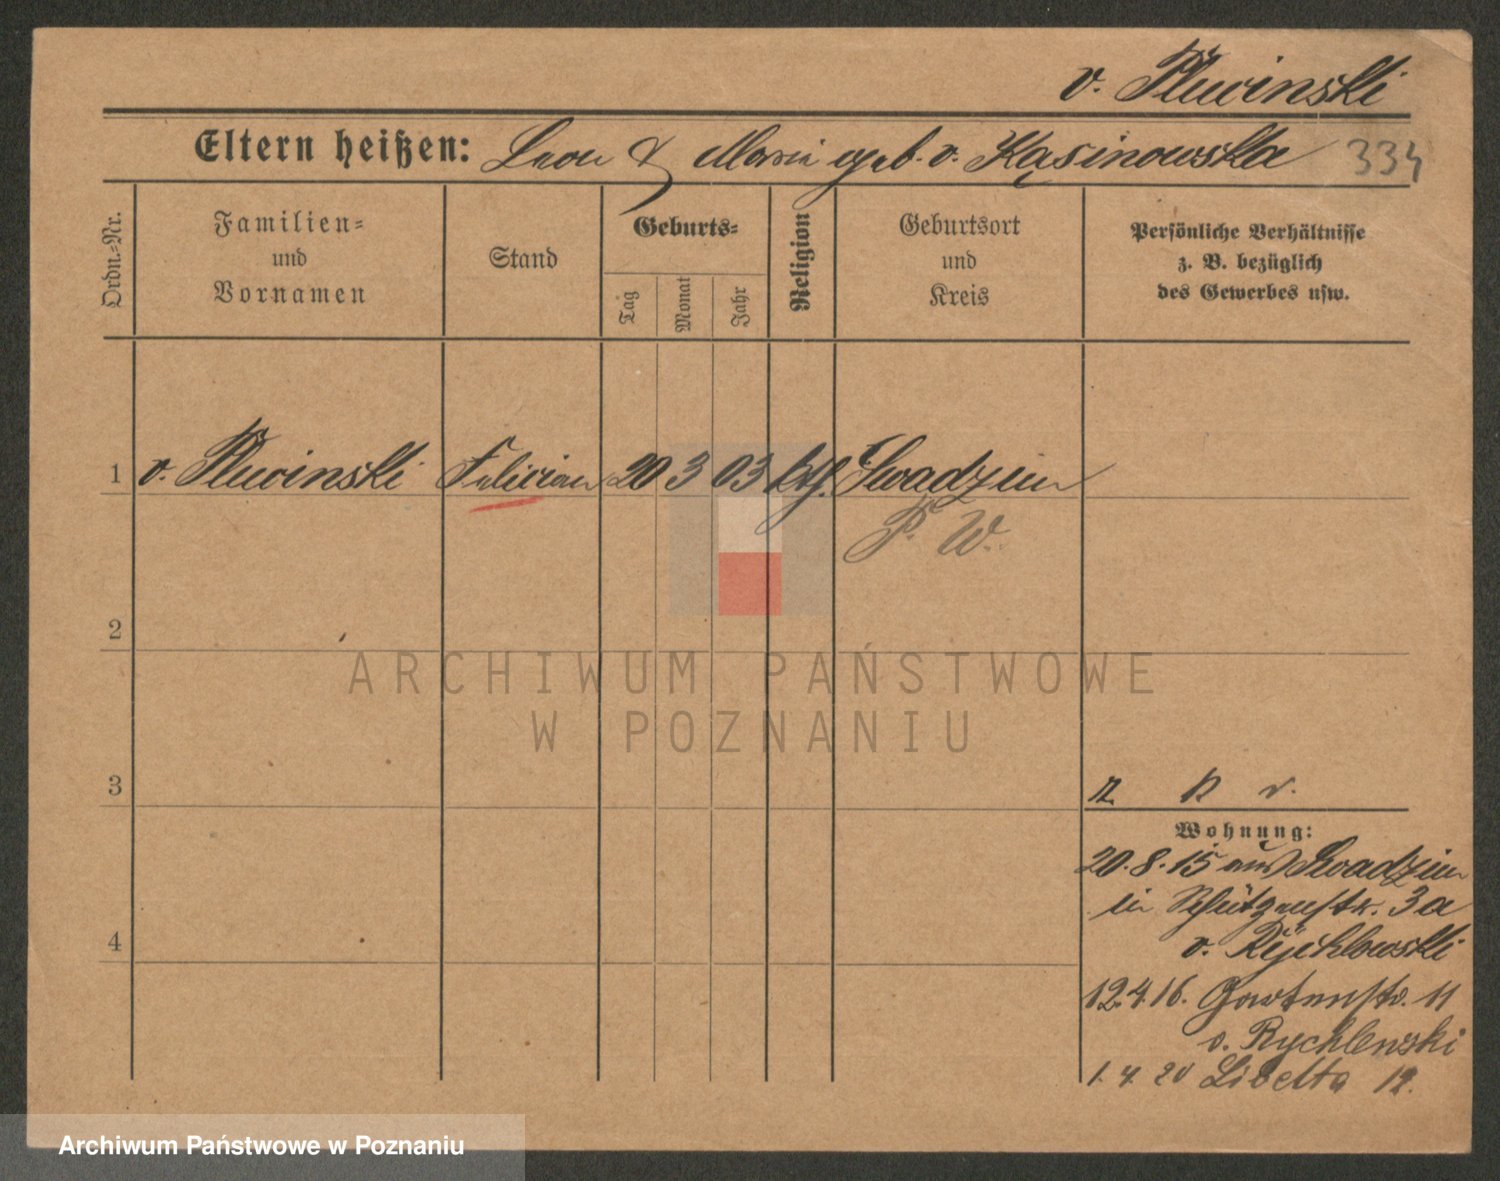 v. Plucinski
Eltern heißen: Leon & Maria geb. v. Kąsinowska 334
Ordn.-Nr.
Familien-
und
Vornamen
Stand
Geburts-
Tag
Monat
Jahr
Religion
Geburtsort
und
Kreis
Persönliche Verhältnisse
z. B. bezüglich
des Gewerbes usw.
1 v. Plucinski Felician 20 3 03 kth. Swadzim
P. W.
2
ARCHIWUM PAŃSTWOWE
W POZNANIU
3
Wohnung:
20.8.15 aus Swadzim
in Schützenstr. 3a
v. Rychlowski
4
12.4.16. Gartenstr. 11
v. Rychlowski
1.4.20 Libelta 12.
Archiwum Państwowe w Poznaniu